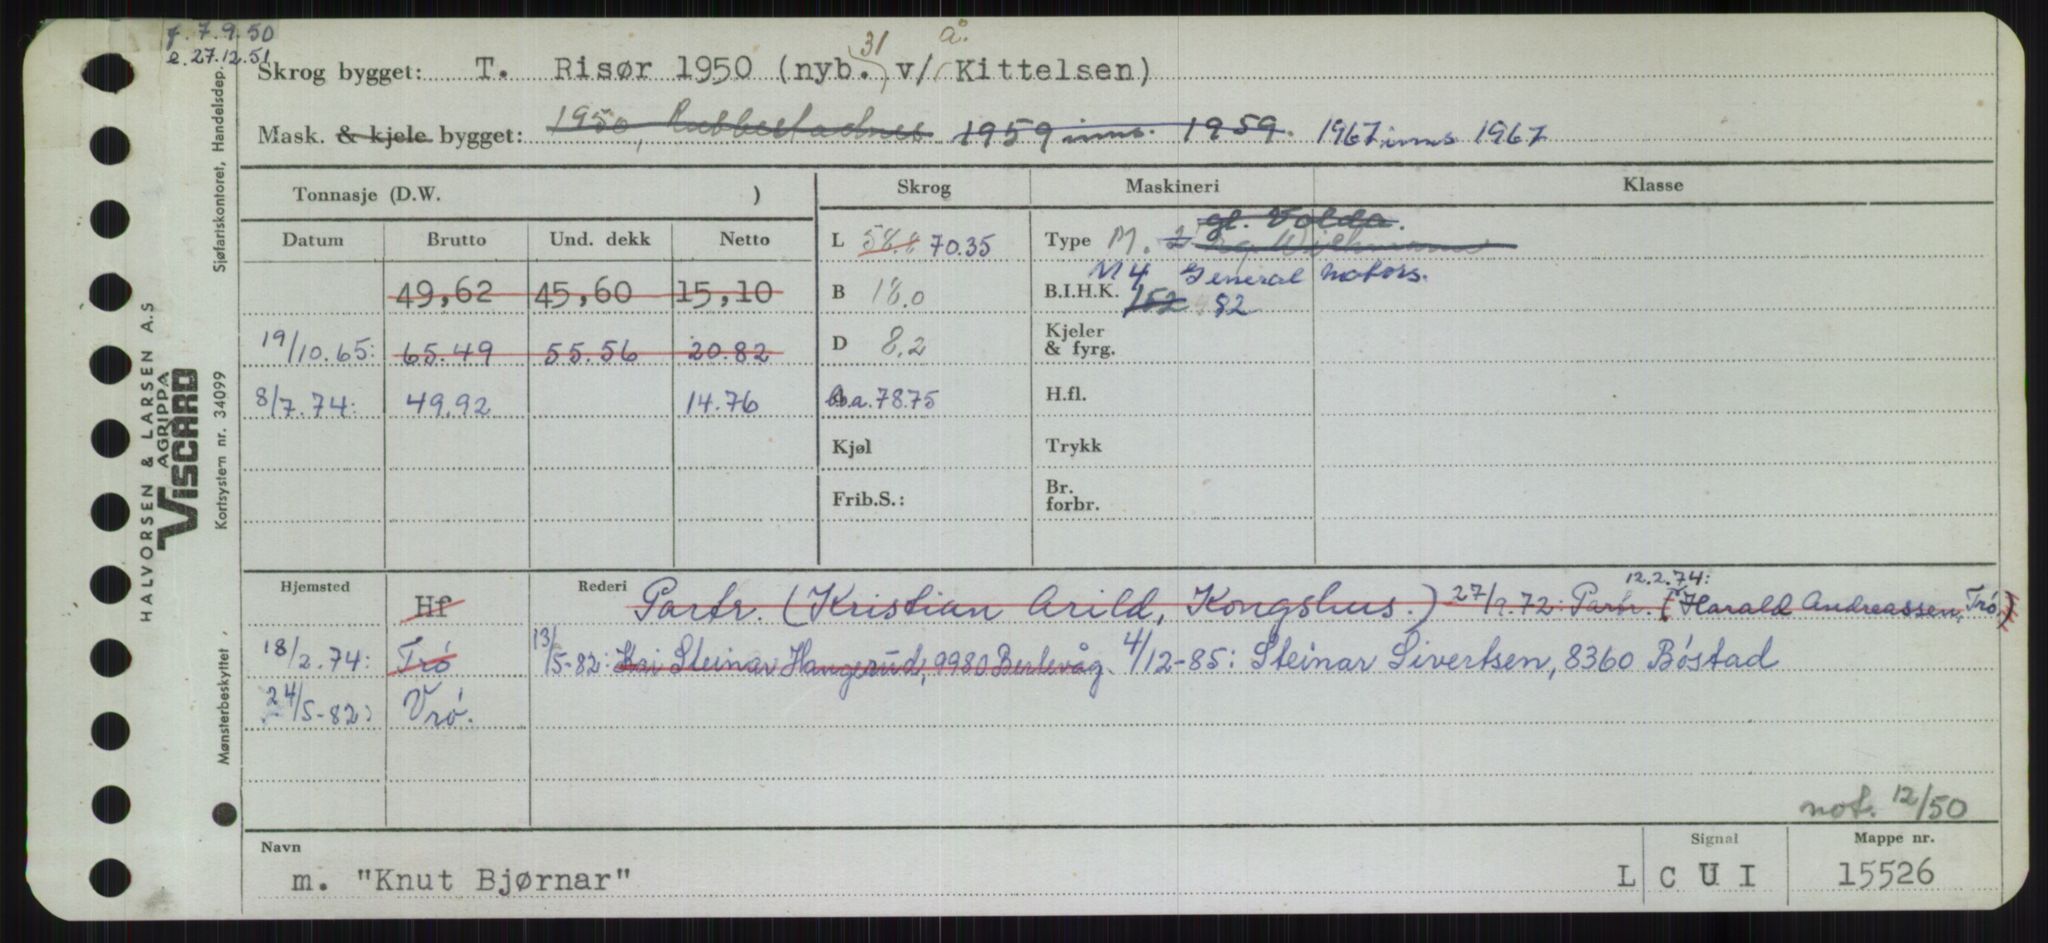 f. 7.9.50
e. 27.12.51
Skrog bygget: T. Risør 1950 (nyb. 31 v/ Å. Kittelsen)
Mask. & kjele bygget: 1950, Rubbestadnes 1959 inns. 1959. 1967 inns 1967
Tonnasje (D.W. ) Skrog Maskineri Klasse
Datum Brutto Und. dekk Netto L 58.8 70.35 Type M. 2 gl. Volda.
Wichmann
M 4 General Motors.
49,62 45,60 15,10 B 18.0 B.I.H.K. 152 82
19/10.65: 65.49 55.56 20.82 D 8,2 Kjeler & fyrg.
8/7.74: 49.92 14.76 b.a. 78.75 H.fl.
Kjøl Trykk
Frib.S.: Br. forbr.
Hjemsted Hf Rederi Partr. (Kristian Arild, Kongshus.) 27/9.72: Partr. (12.2.74: Harald Andreassen, Trø)
18/2.74: Trø 13/5-82: Kai Steinar Haugerud, 9980 Berlevåg. 4/12-85: Steinar Sivertsen, 8360 Bøstad
24/5-82: Vrø.
not. 12/50
Navn Signal Mappe nr.
m. "Knut Bjørnar" L C U I 15526
HALVORSEN & LARSEN A.S
AGRIPPA
VISCARD
Sjøfartskontoret, Handelsdep.
Kortsystem nr. 34099
Mønsterbeskyttet